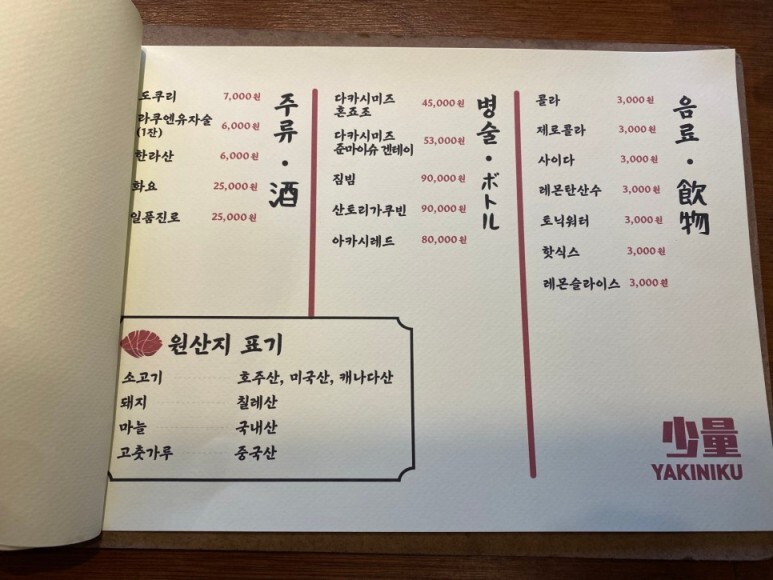 도쿠리 7,000원
라쿠엔유자술 6,000원
(1잔)
한라산 6,000원
화요 25,000원
일품진로 25,000원
주류·酒
다카시미즈 45,000원
혼죠조
다카시미즈 53,000원
준마이슈 겐테이
짐빔 90,000원
산토리가쿠빈 90,000원
아카시레드 80,000원
병술·ボトル
콜라 3,000원
제로콜라 3,000원
사이다 3,000원
레몬탄산수 3,000원
토닉워터 3,000원
핫식스 3,000원
레몬슬라이스 3,000원
음료·飲物
원산지 표기
소고기 호주산, 미국산, 캐나다산
돼지 칠레산
마늘 국내산
고춧가루 중국산
少量
YAKINIKU